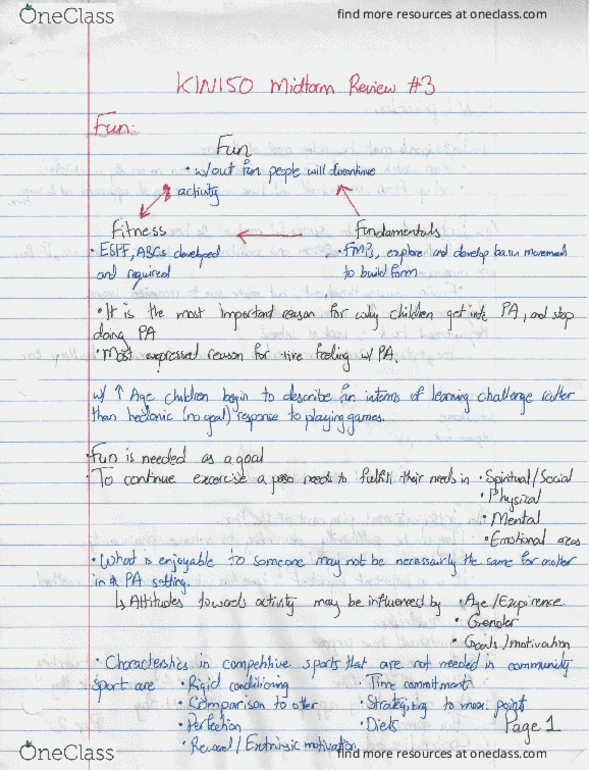 OneClass
find more resources at oneclass.com
KIN150 Midterm Review #3
Fun:
Fun
• w/out fun people will discontinue
activity
Fitness
Fundamentals
• ESPF, ABCs developed
and required
• FMS, explore and develop basic movement
to build form
• It is the most important reason for why children get into PA, and stop
doing PA
• Most expressed reason for +ive feeling w/ PA.
w/ ↑ Age children begin to describe fun interms of learning challenge rather
than hedonic (no goal) response to playing games.
• Fun is needed as a goal
• To continue excercise a person needs to fulfill their needs in • Spiritual/Social
• Physical
• Mental
• Emotional areas
• What is enjoyable to someone may not be necessairly the same for another
in a PA setting.
↳ Attitudes towards activity may be influenced by • Age/Experience
• Gender
• Goals/motivation
• Characteristics in competitive sports that are not needed in community
sport are • Rigid conditioning • Time commitment
• Comparison to other • Strategizing to max. points
• Perfection • Diets
• Reward/Extrinsic motivation
Page 1
OneClass
find more resources at oneclass.com